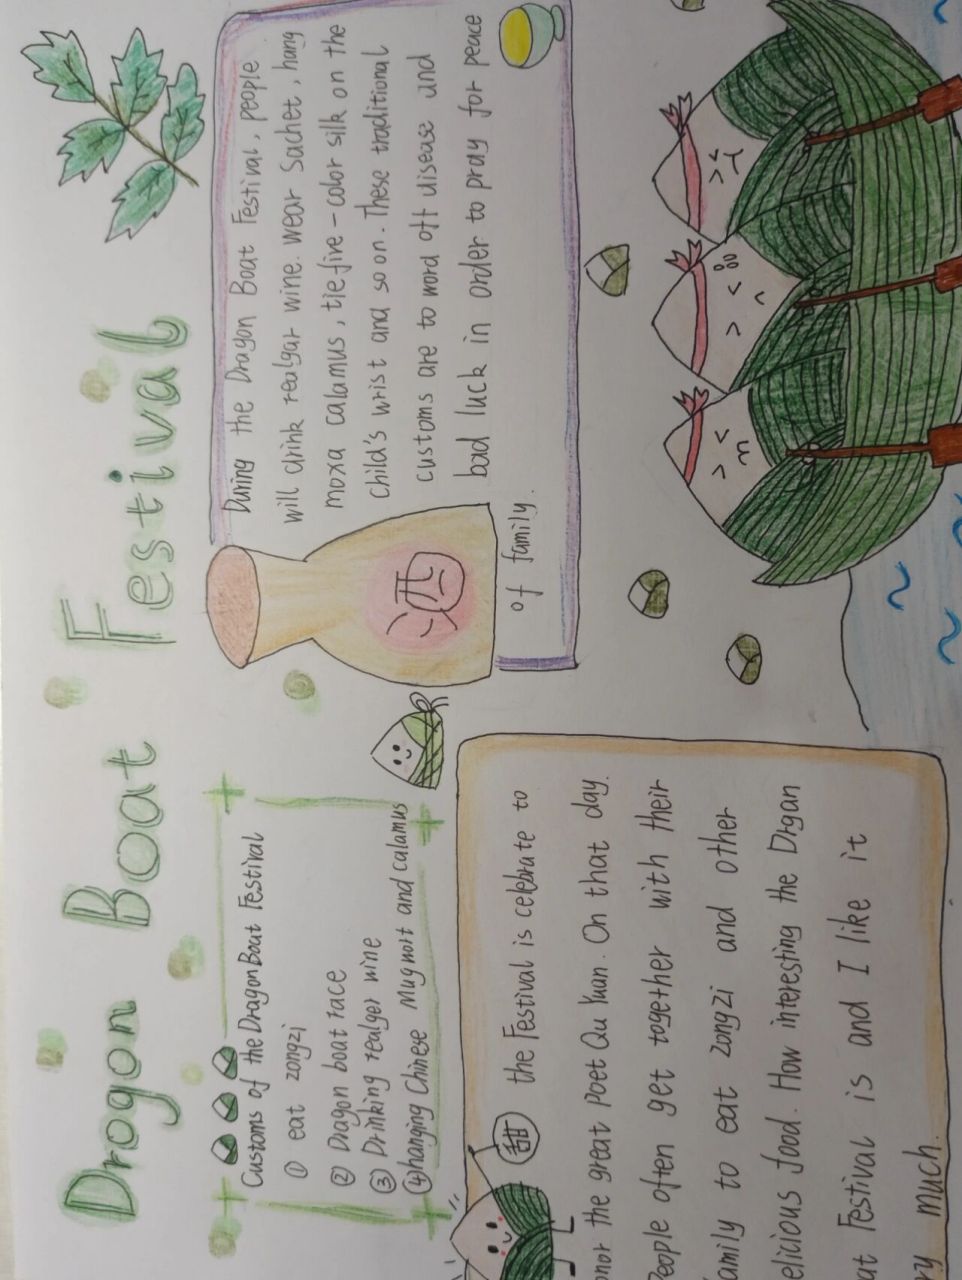 Drogon Boat Festival
Customs of the Dragon Boat Festival
① eat zongzi
② Dragon boat race
③ Drinking realger wine
④ hanging Chinese Mugwort and calamus
During the Dragon Boat Festival, people
will drink realgar wine. wear Sachet, hang
moxa calamus, tie five-color silk on the
child's wrist and so on. These traditional
customs are to word off disease und
bad luck in order to pray for peace
of family.
酒
甜
the Festival is celebrate to
onor the great Poet Qu Yuan. On that day.
People often get together with their
amily to eat zongzi and other
elicious food. How interesting the Drgan
at Festival is and I like it
ry much.